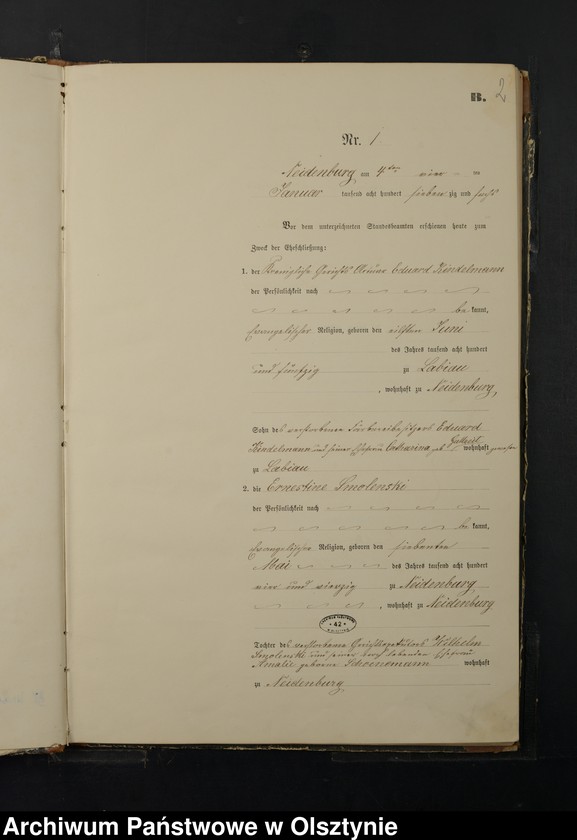 B. 2
Nr. 1
Neidenburg am 4ten vier
Januar tausend acht hundert siebenzig und sechs
Vor dem unterzeichneten Standesbeamten erschienen heute zum
Zweck der Eheschließung:
1. der Königliche Gerichts Eduard Kindelmann
der Persönlichkeit nach
be kannt,
evangelischer Religion, geboren den eilften Juni
des Jahres tausend acht hundert
und fünfzig zu Labiau
, wohnhaft zu Neidenburg
Sohn des verstorbenen Färbereibesitzers Eduard
Kindelmann und seiner Ehefrau Catharina geb wohnhaft gewesen
zu Labiau
2. die Ernestine Smolenski
der Persönlichkeit nach
be kannt,
evangelischer Religion, geboren den siebenten
Mai des Jahres tausend acht hundert
vier und vierzig zu Neidenburg
, wohnhaft zu Neidenburg
42
Tochter des verstorbenen Wilhelm
Smolenski und seiner noch lebenden Ehefrau
Amalie geborne wohnhaft
zu Neidenburg
Archiwum Państwowe w Olsztynie